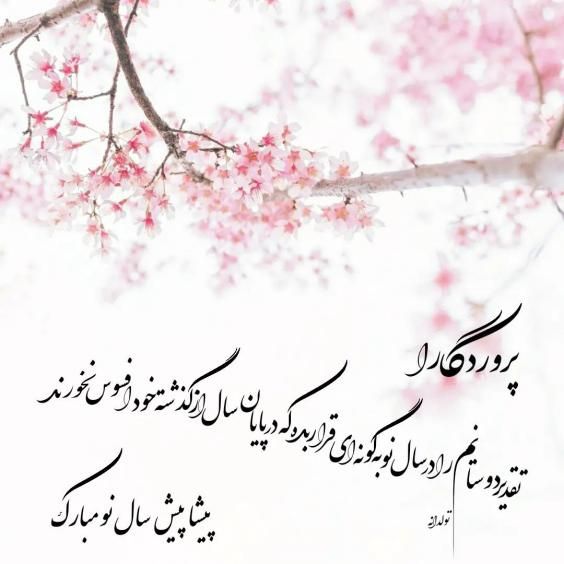 پروردگارا
تقدیر دوستانم را در سال نو به گونه ای قرار بده که در پایان سال از گذشته خود افسوس نخورند
تولدانه
پیشاپیش سال نو مبارک